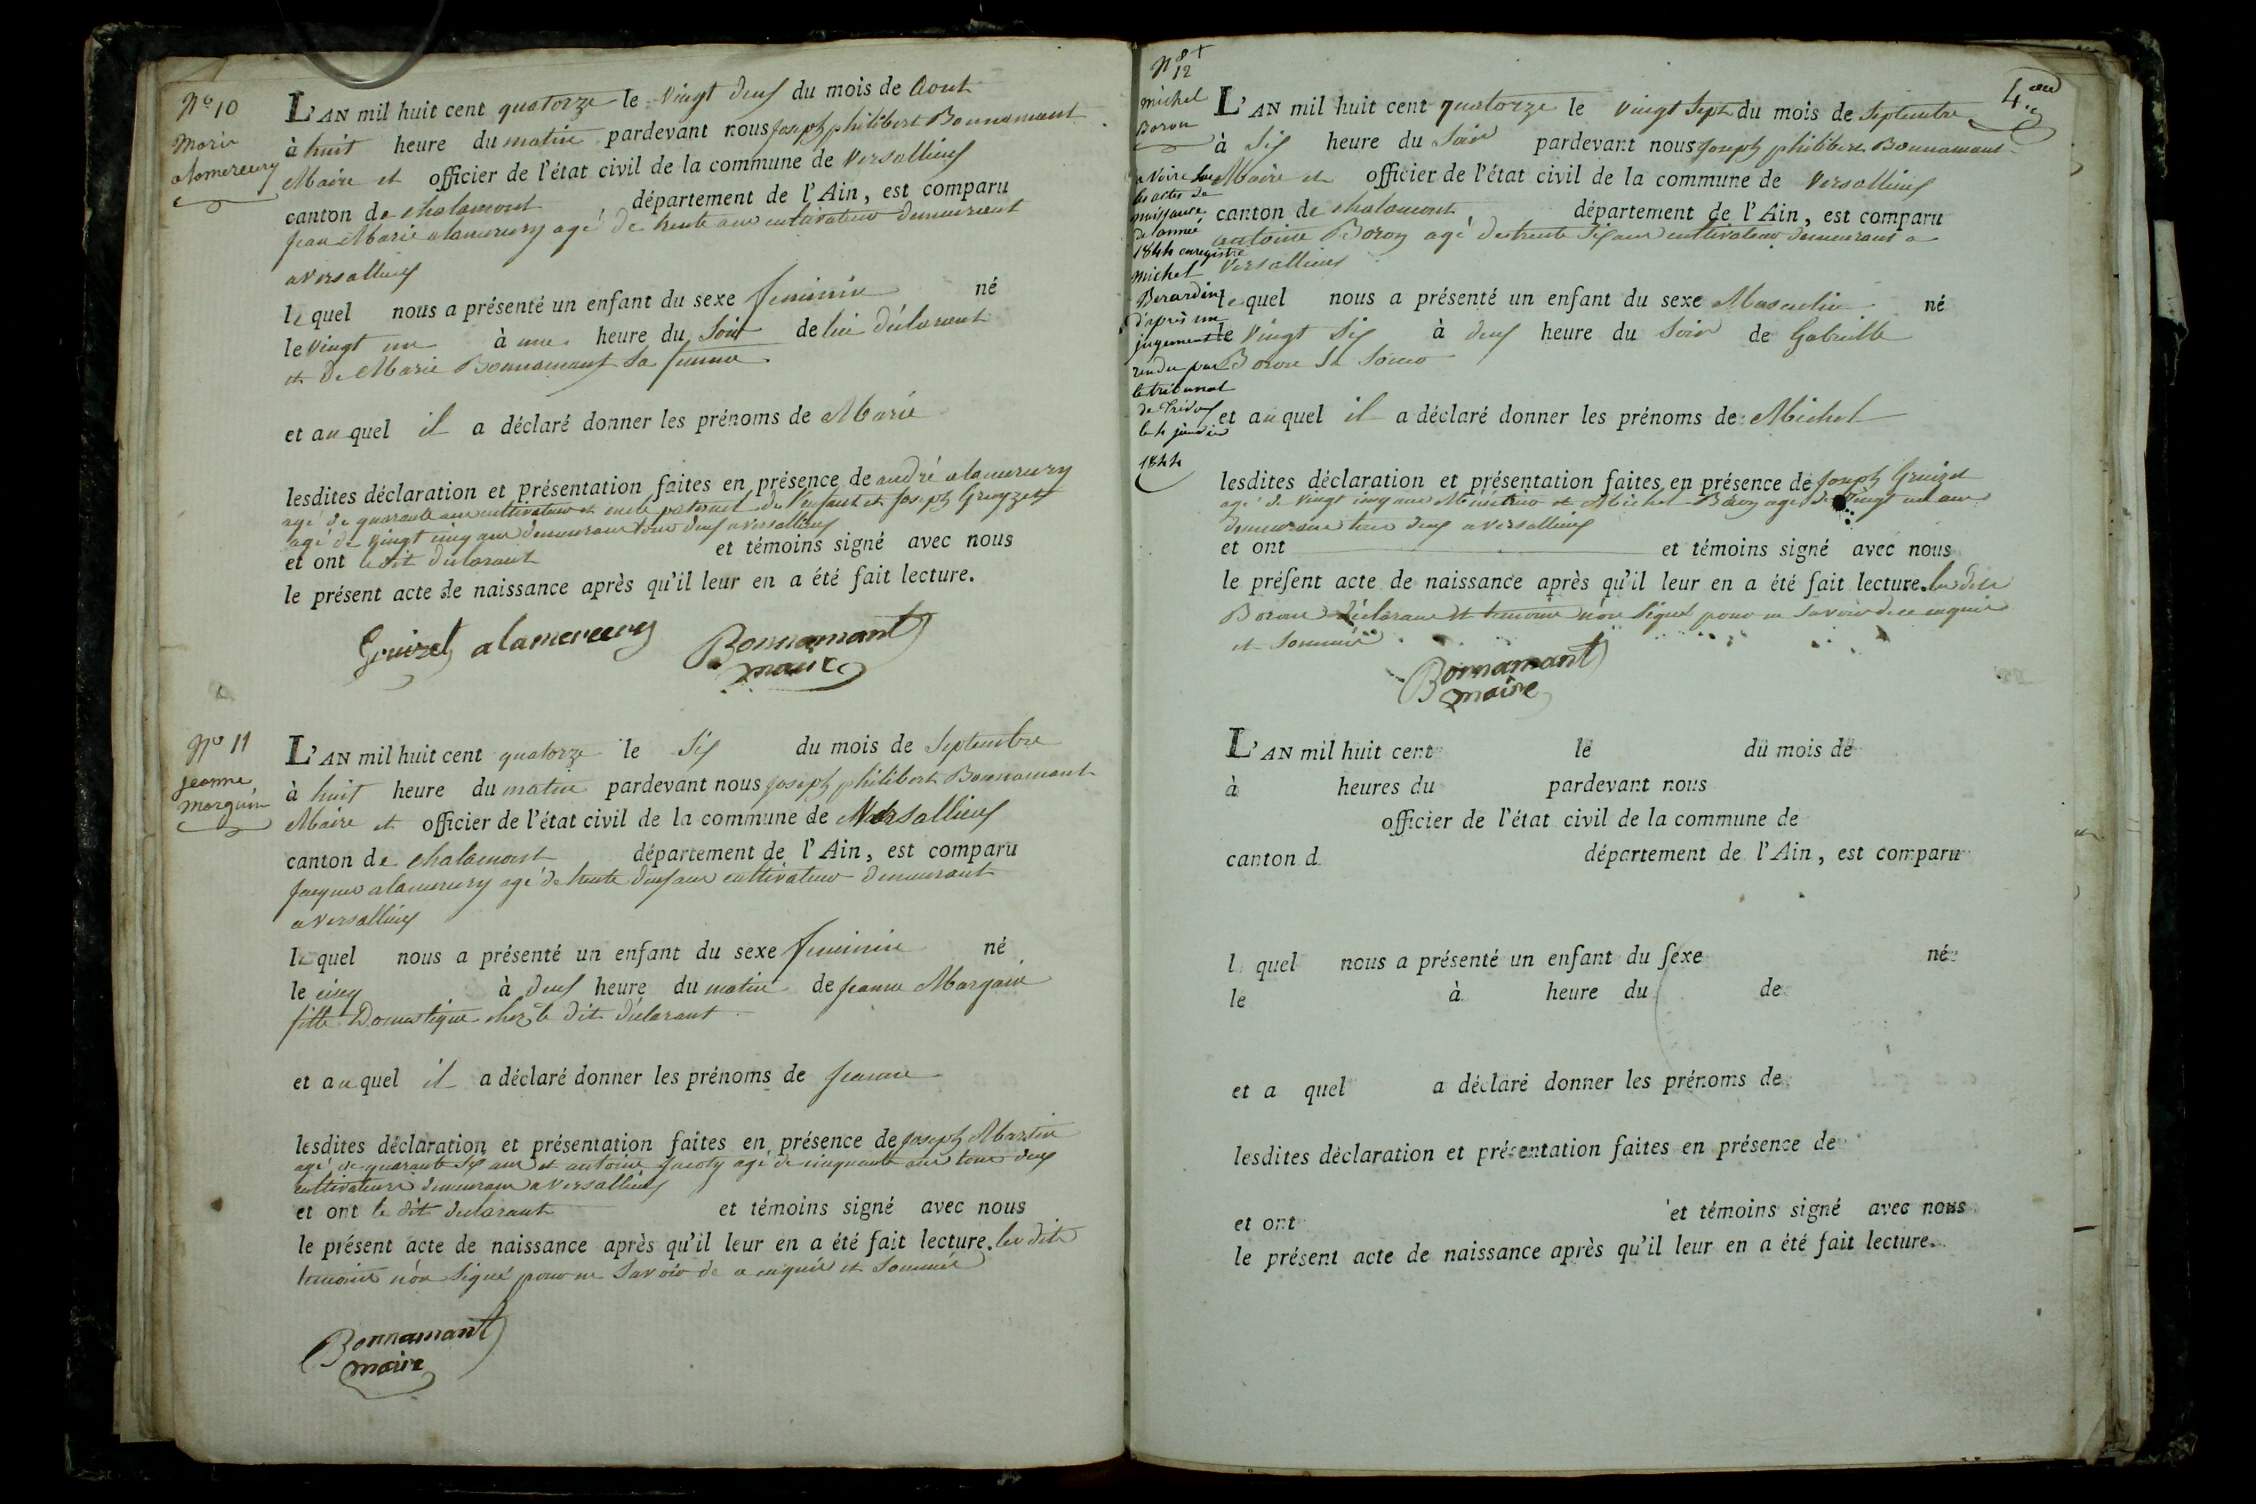 N° 10
Marie
alamercery
L'AN mil huit cent quatorze le Vingt deux du mois de Aout
à huit heure du matin pardevant nous joseph philibert Bonnamant
Maire et officier de l'état civil de la commune de Versallieux
canton de chalamont département de l'Ain, est comparu
jean Marie alamercery agé de trente ans cultivateur demeurant
a versallieux
lequel nous a présenté un enfant du sexe feminin né
le vingt un à une heure du Soir de lui déclarant
et De Marie Bonnamant Sa femme
et auquel il a déclaré donner les prénoms de Marie
lesdites déclaration et présentation faites en présence de andré alamercery
agé de quarante ans cultivateur et oncle paternel de l'enfant et joseph Gruyzet
agé de vingt cinq ans demeurans tous deux a versallieux
et ont ledit declarant et témoins signé avec nous
le présent acte de naissance après qu'il leur en a été fait lecture.
Gruizet alamercery Bonnamant
maire
N° 11
jeanne
Marguin
L'AN mil huit cent quatorze le Six du mois de Septembre
à huit heure du matin pardevant nous joseph philibert Bonnamant
Maire et officier de l'état civil de la commune de Versallieux
canton de chalamont département de l'Ain, est comparu
jacques alamercery agé de trente deux ans cultivateur demeurant
a versallieux
lequel nous a présenté un enfant du sexe feminin né
le cinq à deux heure du matin de jeanne Marguin
fille Domestique chez le dit déclarant
et auquel il a déclaré donner les prénoms de jeanne
lesdites déclaration et présentation faites en présence de joseph Martin
agé de quarante six ans et antoine jacoty agé de cinquante ans tous deux
cultivateurs demeurans a versallieux
et ont le dit declarant et témoins signé avec nous
le présent acte de naissance après qu'il leur en a été fait lecture. les dits
temoins n'on Signé pour ne Savoir de ce enquis et Sommés
Bonnamant
maire
N° 12
michel
Boron
a Voire sur
les actes de
naissance
de l'année
1844 enregistre
Michel
Berardin
d'après un
jugement
rendu par
le tribunal
de Trévoux
le 4 janvier
1844
4.eme
L'AN mil huit cent quatorze le vingt Sept du mois de Septembre
à Six heure du Soir pardevant nous joseph philibert Bonnamant
Maire et officier de l'état civil de la commune de Versallieux
canton de chalamont département de l'Ain, est comparu
antoine Boron agé de trente Six ans cultivateur demeurant a
Versallieux
lequel nous a présenté un enfant du sexe Masculin né
le Vingt Six à deux heure du Soir de Gabrielle
Boron Sa Soeur
et auquel il a déclaré donner les prénoms de Michel
lesdites déclaration et présentation faites en présence de joseph Gruizet
agé de vingt cinq ans et Michel Boron agé de Vingt un ans
demeurans tous deux a versallieux
et ont et témoins signé avec nous
le préſent acte de naissance après qu'il leur en a été fait lecture. les dits
Boron déclarans et temoins n'on Signé pour ne Savoir de ce enquis
et Sommés
Bonnamant
maire
L'AN mil huit cent le du mois de
à heures du pardevant nous
officier de l'état civil de la commune de
canton d département de l'Ain, est comparu
l quel nous a présenté un enfant du ſexe né
le à heure du de
et a quel a déclaré donner les prénoms de
lesdites déclaration et présentation faites en présence de
et ont et témoins signé avec nous
le présent acte de naissance après qu'il leur en a été fait lecture.